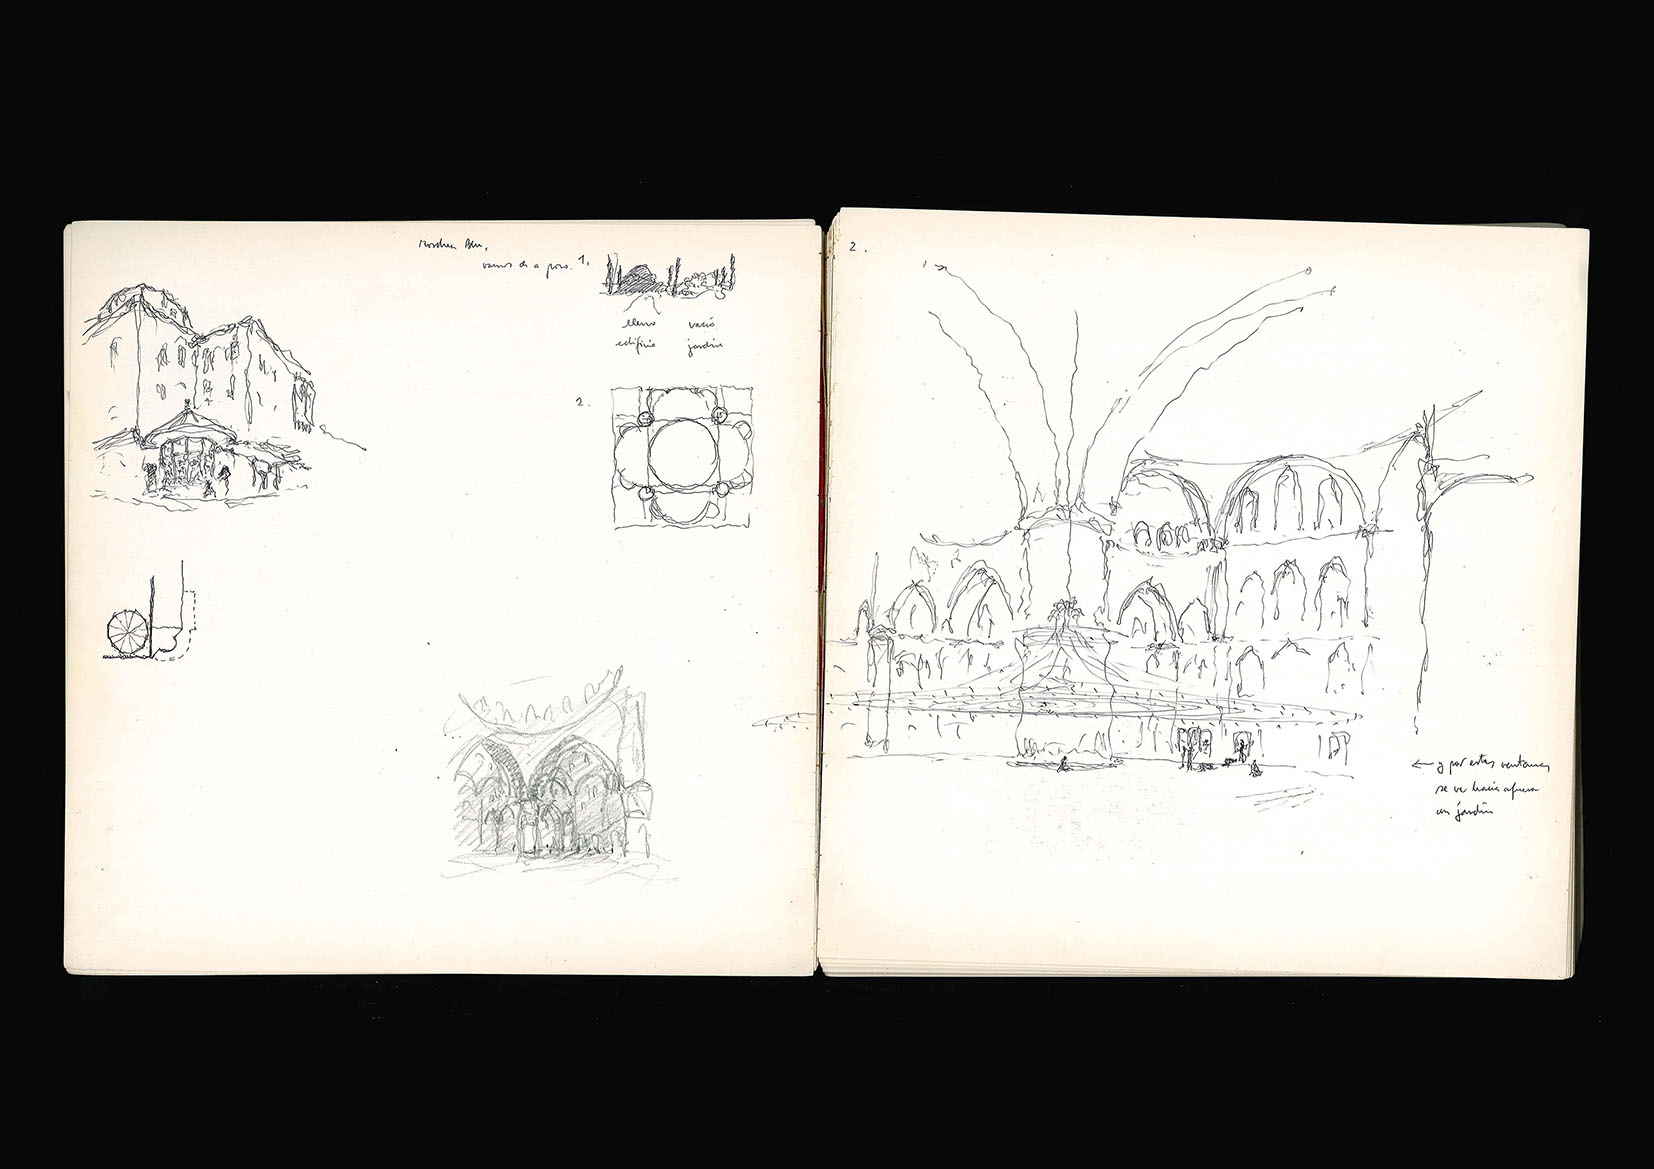 Moschea Blu,
vamos de a poco. 1.
lleno vacío
edificio jardín
2.
2.
← y por estas ventanas
se ve hacia afuera
un jardín